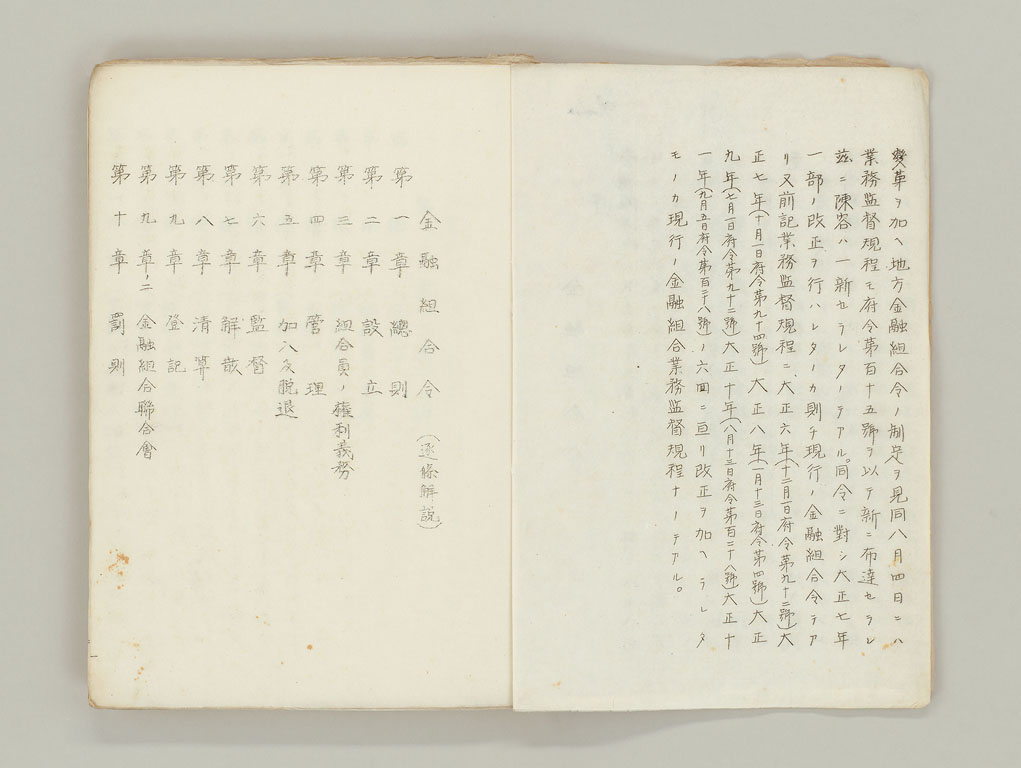 變革ヲ加ヘ地方金融組合令ノ制定ヲ見同八月四日ニハ
業務監督規程モ府令第百十五號ヲ以テ新ニ布達セラレ
茲ニ陳容ハ一新セラレタノテアル。同令ニ對シ大正七年
一部ノ改正ヲ行ハレタノカ則チ現行ノ金融組合令テア
リ又前記業務監督規程ニ大正六年(十二月一日府令第九十二號)大
正七年(十月一日府令第九十四號)大正八年(一月十三日府令第四號)大正
九年(七月一日府令第九十二號)大正十年(八月十三日府令第百二十八號)大正十
一年(九月五日府令第百二十八號)ノ六回ニ亘リ改正ヲ加ヘラレタ
モノカ現行ノ金融組合業務監督規程ナノテアル。
金融組合令(逐條解説)
第一章 總則
第二章 設立
第三章 組合員ノ權利義務
第四章 管理
第五章 加入及脱退
第六章 監督
第七章 解散
第八章 清算
第九章 登記
第九章ノ二 金融組合聯合會
第十章 罰則